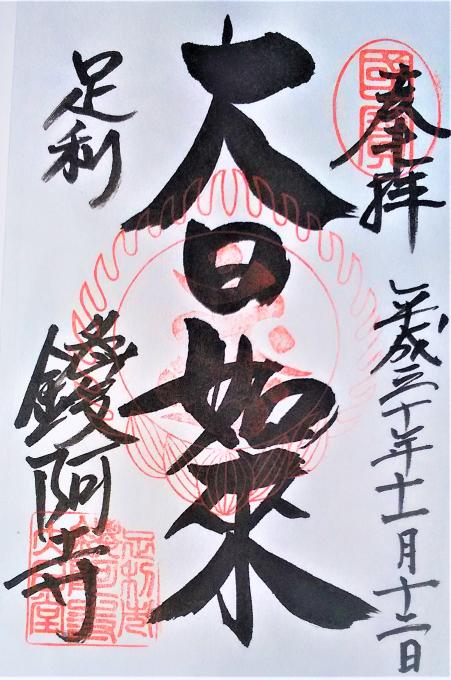 國寶
奉拝
平成三十年十一月十二日
大日如来
足利
鑁阿寺